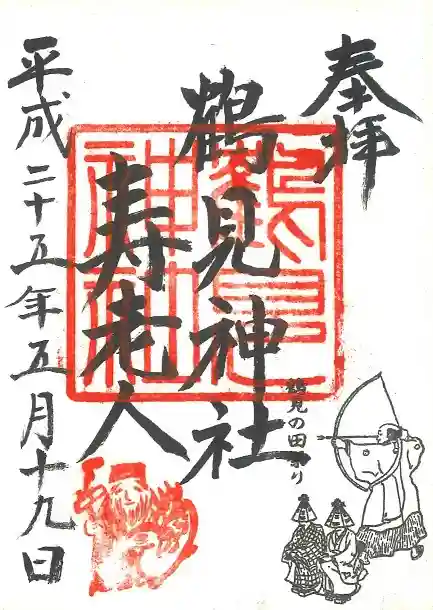 奉拝
鶴見神社
寿老人
平成二十五年五月十九日
鶴見の田祭り
鶴見神社